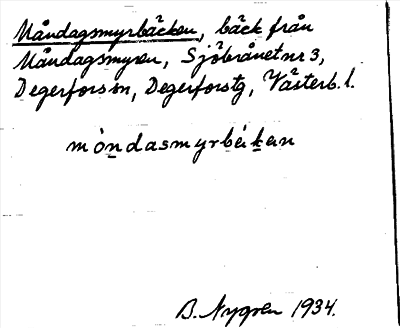 Måndagsmyrbäcken, bäck från
Måndagsmyren, Sjöbrånet nr 3,
Degerfors sn, Degerfors tg, Västerb. l.
mòndasmyrbèkan
B. Nygren 1934.